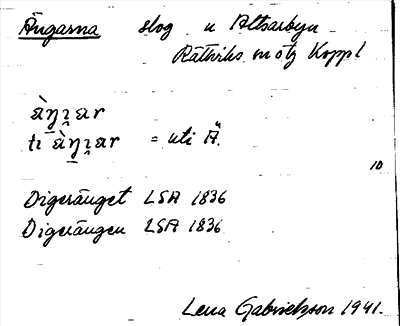 Ängarna skog n Altsarbyn
Rättviks sn o tg Koppl
äŋ̀ɪ̯ar
ti äŋ̀ɪ̯ar = uti Ä.
10
Digeränget LSA 1836
Digerängen LSA 1836
Lena Gabrielsson 1941.